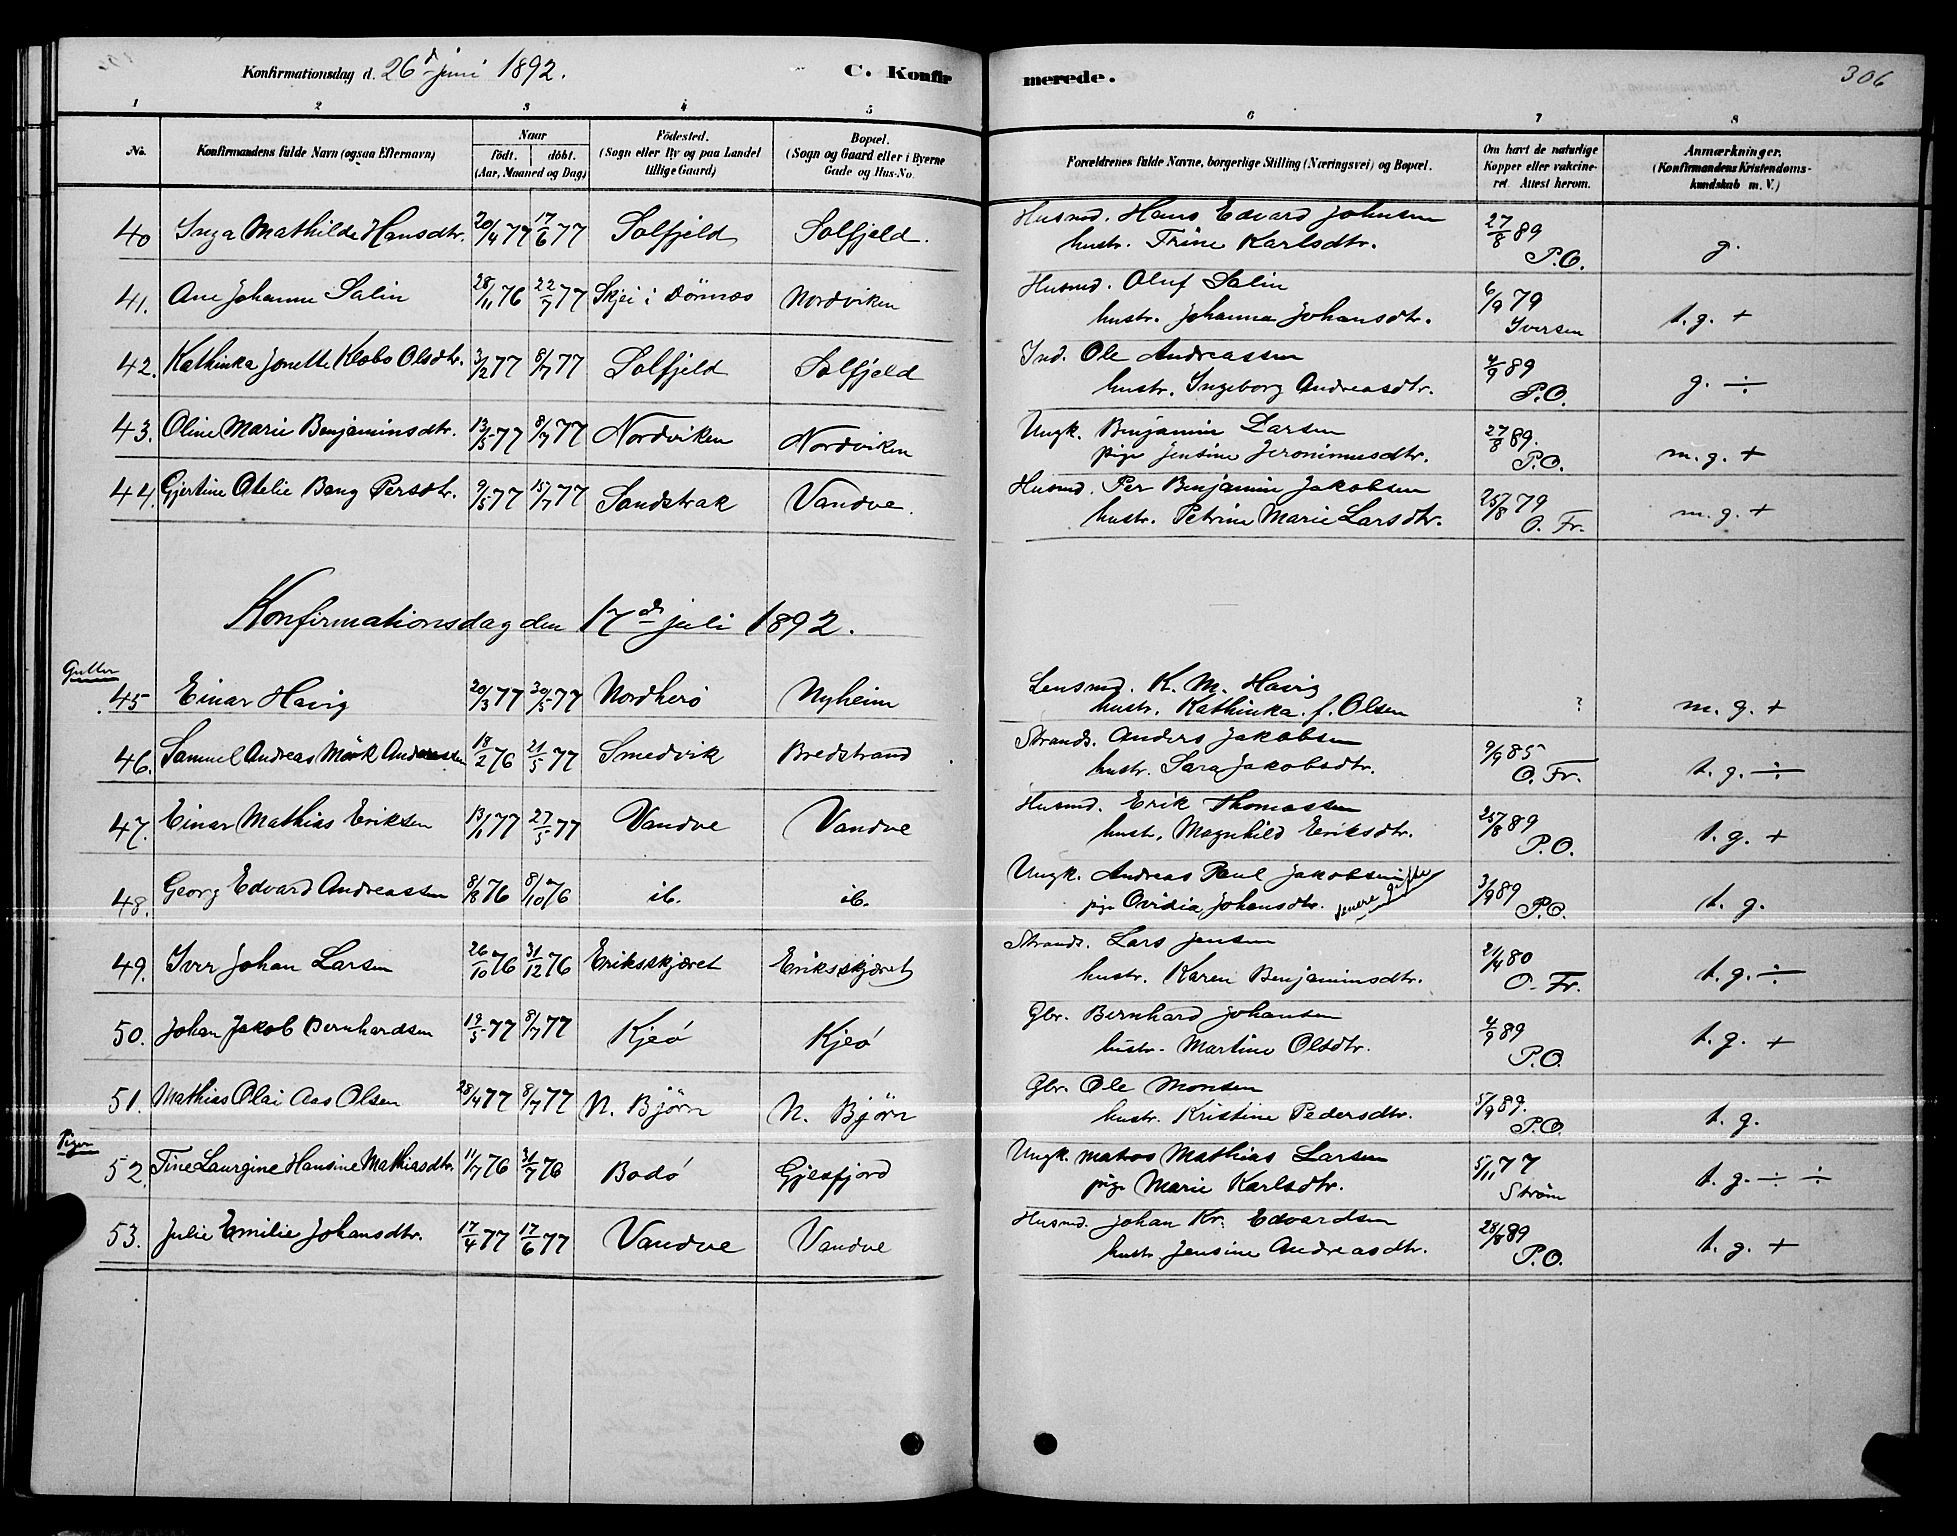 Konfirmationsdag d. 26d juni 1892. C. Konfirmerede. 306
1 2 3 4 5 6 7 8
No. Konfirmandens fulde Navn (ogsaa Efternavn) Naar født. døbt. (Aar, Maaned og Dag) Födested. (Sogn eller By og paa Landet tillige Gaard) Bopæl. (Sogn og Gaard eller i Byerne Gade og Hus-No. Forældrenes fulde Navne, borgerlige Stilling (Næringsvei) og Bopæl. Om havt de naturlige Kopper eller vakcineret. Attest herom. Anmærkninger. (Konfirmandens Kristendomskundskab m. V.)
40 Inga Mathilde Hansdtr. 20/4 77 17/6 77 Solfjeld Solfjeld. Husmd. Hans Edvard Johnsen 27/8 89
hustr. Trine Karlsdtr. P.O. g.
41. Ane Johanne Salin 28/11 76 22/7 77 Skjei i Dønnæs Nordviken Husmd. Oluf Salin 6/9 79
hustr. Johanna Johansdtr. Iversen t. g. +
42. Kathinka Jonette Klobo Olsdtr. 3/2 77 8/7 77 Solfjeld Solfjeld Ind. Ole Andreassen 4/9 89
hustr. Ingeborg Andreasdtr. P.O. g. ÷
43. Oline Marie Benjaminsdtr. 13/5 77 8/7 77 Nordviken Nordviken Ungk. Benjamin Larsen 27/8 89.
pige Jensine Jeronimusdtr. P.O. m. g. +
44. Gjertine Otelie Bang Persdtr. 9/5 77 15/7 77 Sandstrak Vandve. Husmd. Per Benjamin Jakobsen 25/8 79
hustr. Petrine Marie Larsdtr. O. Fr. m. g. +
Konfirmationsdag den 17de juli 1892.
Gutter
45 Einar Havig 20/3 77 30/5 77 Nordherø Nyheim Lensmd. K. M. Havig
hustr. Kathinka f. Olsen ? m. g. +
46. Samuel Andreas Mørk Andersen 18/2 76 21/5 77 Smedvik Bredstrand Strands. Anders Jakobsen 9/9 85
hustr. Sara Jakobsdtr. O. Fr. t. g. ÷
47. Einar Mathias Eriksen 13/1 77 27/5 77 Vandve Vandve Husmd. Erik Thomassen 25/8 89
hustr. Magnhild Eriksdtr. P.O. t. g. +
48. Georg Edvard Andreassen 8/8 76 8/10 76 ib. ib. Ungk. Andreas Paul Jakobsen 3/9 89
pige Ovidia Johansdtr. senere gifte P.O. t. g.
49. Iver Johan Larsen 26/10 76 31/12 76 Eriksskjæret Eriksskjæret Strands. Lars Jensen 21/4 80
hustr. Karen Benjaminsdtr. O. Fr. t. g. ÷
50. Johan Jakob Bernhardsen 19/5 77 8/7 77 Kjeø Kjeø Gbr. Bernhard Johansen 4/9 89
hustr. Martine Olsdtr. P.O. t. g. +
51. Mathias Olai Aas Olsen 28/4 77 8/7 77 N. Bjørn N. Bjørn Gbr. Ole Monsen 5/9 89.
hustr. Kristine Pedersdtr. P.O. t. g.
Piger
52. Tine Laurgine Hansine Mathiasdtr. 11/7 76 31/7 76 Bodø Gjesfjord Ungk. matros Mathias Larsen 5/11 77
pige Marie Karlsdtr. Strøm t. g. ÷ ÷
53. Julie Emilie Johansdtr. 17/4 77 17/6 77 Vandve Vandve Husmd. Johan Kr. Edvardsen 28/8 89
hustr. Jensine Andreasdtr. P.O. t. g. +